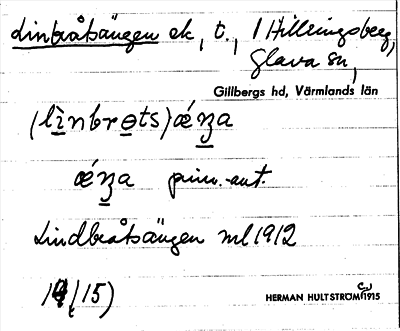 Linbråtsängen ek, t., i Hillringsberg,
Glava sn,
Gillbergs hd, Värmlands län
(lìnbrɵts)ǽŋa
ǽŋa prim.-aut.
Lindbråtsängen ml 1912
14/15)
HERMAN HULTSTRÖM 1915